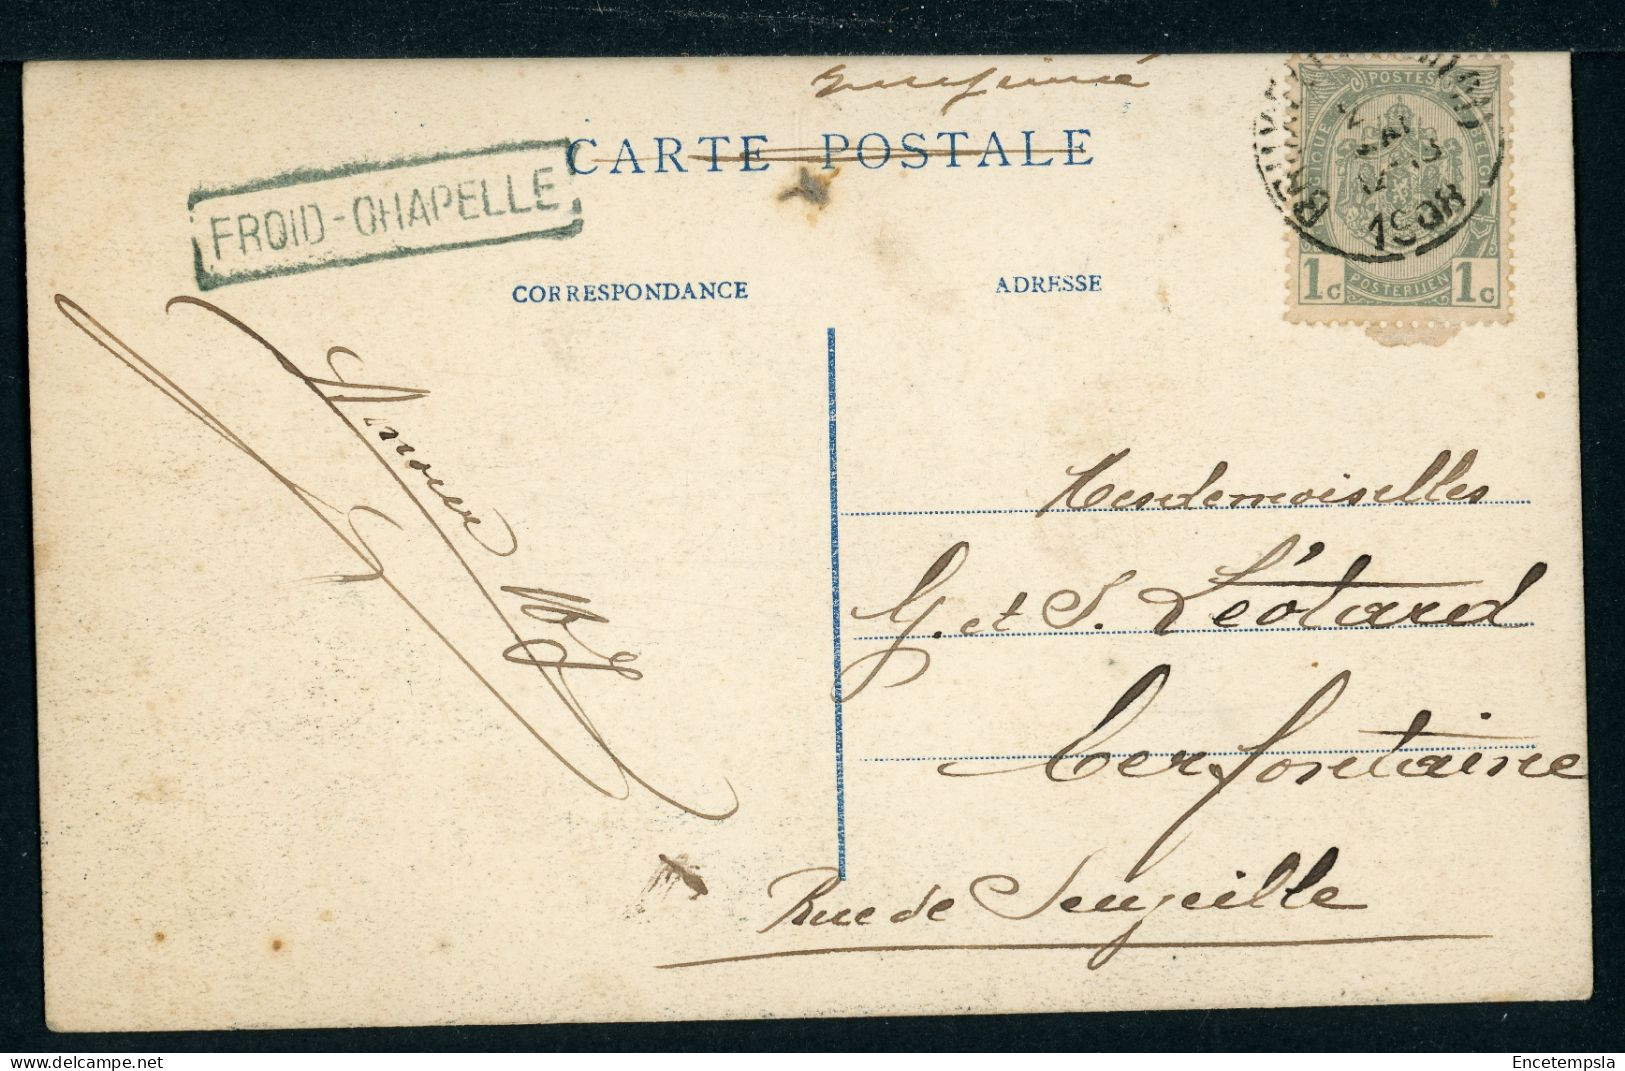 CARTE POSTALE
FROID-CHAPELLE
CORRESPONDANCE
ADRESSE
POSTES
BELGIQUE BELGIË
1c POSTERIJEN 1c
1908
Mesdemoiselles
G. et S. Léotard
Cerfontaine
Rue de
Encetempsia